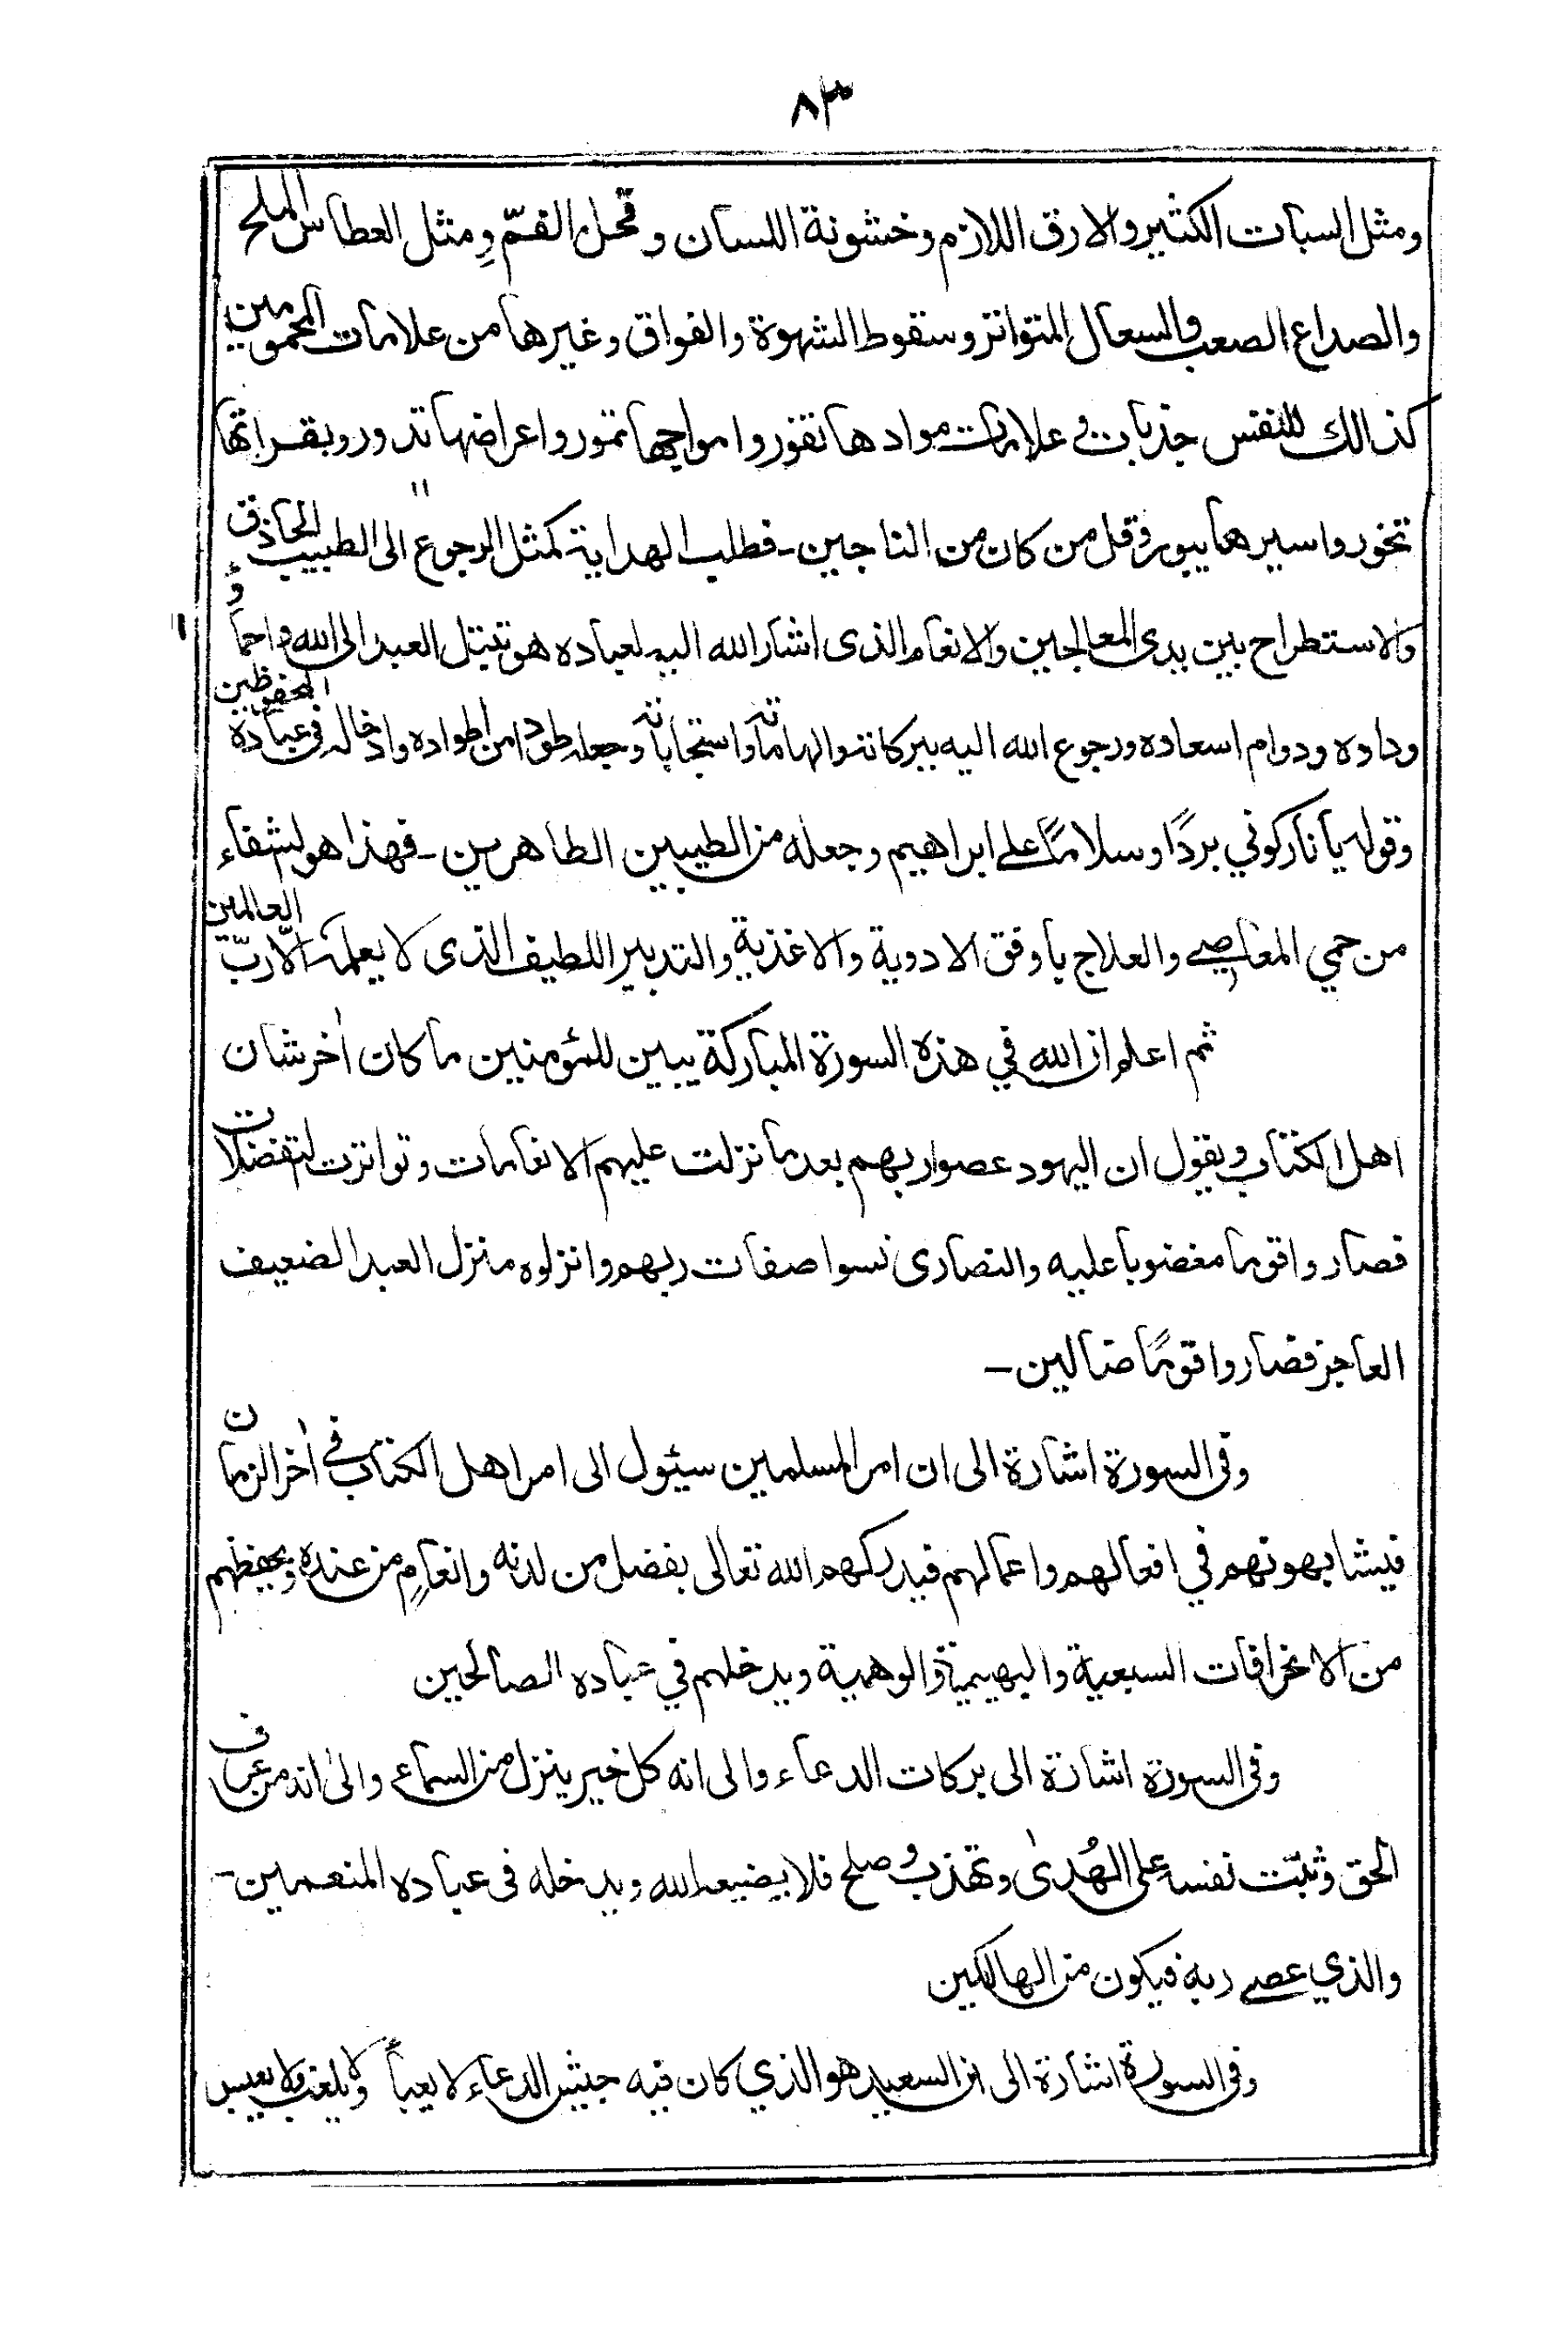 ٨٣
ومثل السبات الكثير والارق اللازم وخشونة اللسان وقحل الفمّ ومثل العطاس الملح
والصداع الصعب والسعال المتواتر وسقوط الشهوة والفواق وغيرها من علامات المحمومين
كذالك للنفس جذبات وعلامات موادها تفور وامواجها تمور واعراضها تدور وبقراتها
تخور واسيرها يبور وقل من كان من الناجين - فطلب الهداية كمثل الرجوع الى الطبيب الحاذق
والاستطراح بين يدى المعالجين والانعام الذى اشار الله اليه لعباده هو تبتل العبد الى الله واحماءُ
وداده ودوام اسعاده ورجوع الله اليه ببركاته والهاماته واستجاباته وجعله طودا من اطواده وادخاله فى عباده المحفوظين
وقوله يا نار كوني بردًا وسلامًا على ابراهيم وجعله من الطيبين الطاهرين - فهذا هو الشفاء
من حمي المعاصي والعلاج باوفق الادوية والاغذية والتدبير اللطيف الذى لا يعلمه الّا ربّ العالمين
ثم اعلم ان الله في هذه السورة المباركة يبين للمؤمنين ما كان اٰخر شان
اهل الكتاب ويقول ان اليهود عصوا ربهم بعد ما نزلت عليهم الانعامات وتواترت التفضلات
فصاروا قوما مغضوبا عليه والنصارى نسوا صفات ربهم وانزلوه منزل العبد الضعيف
العاجز فصاروا قومًا ضالين -
وفى السورة اشارة الى ان امر المسلمين سيئول الى امر اهل الكتاب في اٰخر الزمان
فيشابهونهم في افعالهم واعمالهم فيدركهم الله تعالى بفضل من لدنه وانعامٍ من عنده ويحفظهم
من الانحرافات السبعية والبهيمية والوهمية ويدخلهم في عباده الصالحين
وفى السورة اشارة الى بركات الدعاء والى انه كل خير ينزل من السماء والىٰ انه من عرف
الحق وثبّت نفسه على الهُدىٰ وتهذب وصلح فلا يضيعه الله ويدخله فى عباده المنعمين -
والذي عصى ربه فيكون من الهالكين
وفى السورة اشارة الى ان السعيد هو الذي كان فيه جيش الدعاء لا يعبأ ولا يلغب ولا يعبس